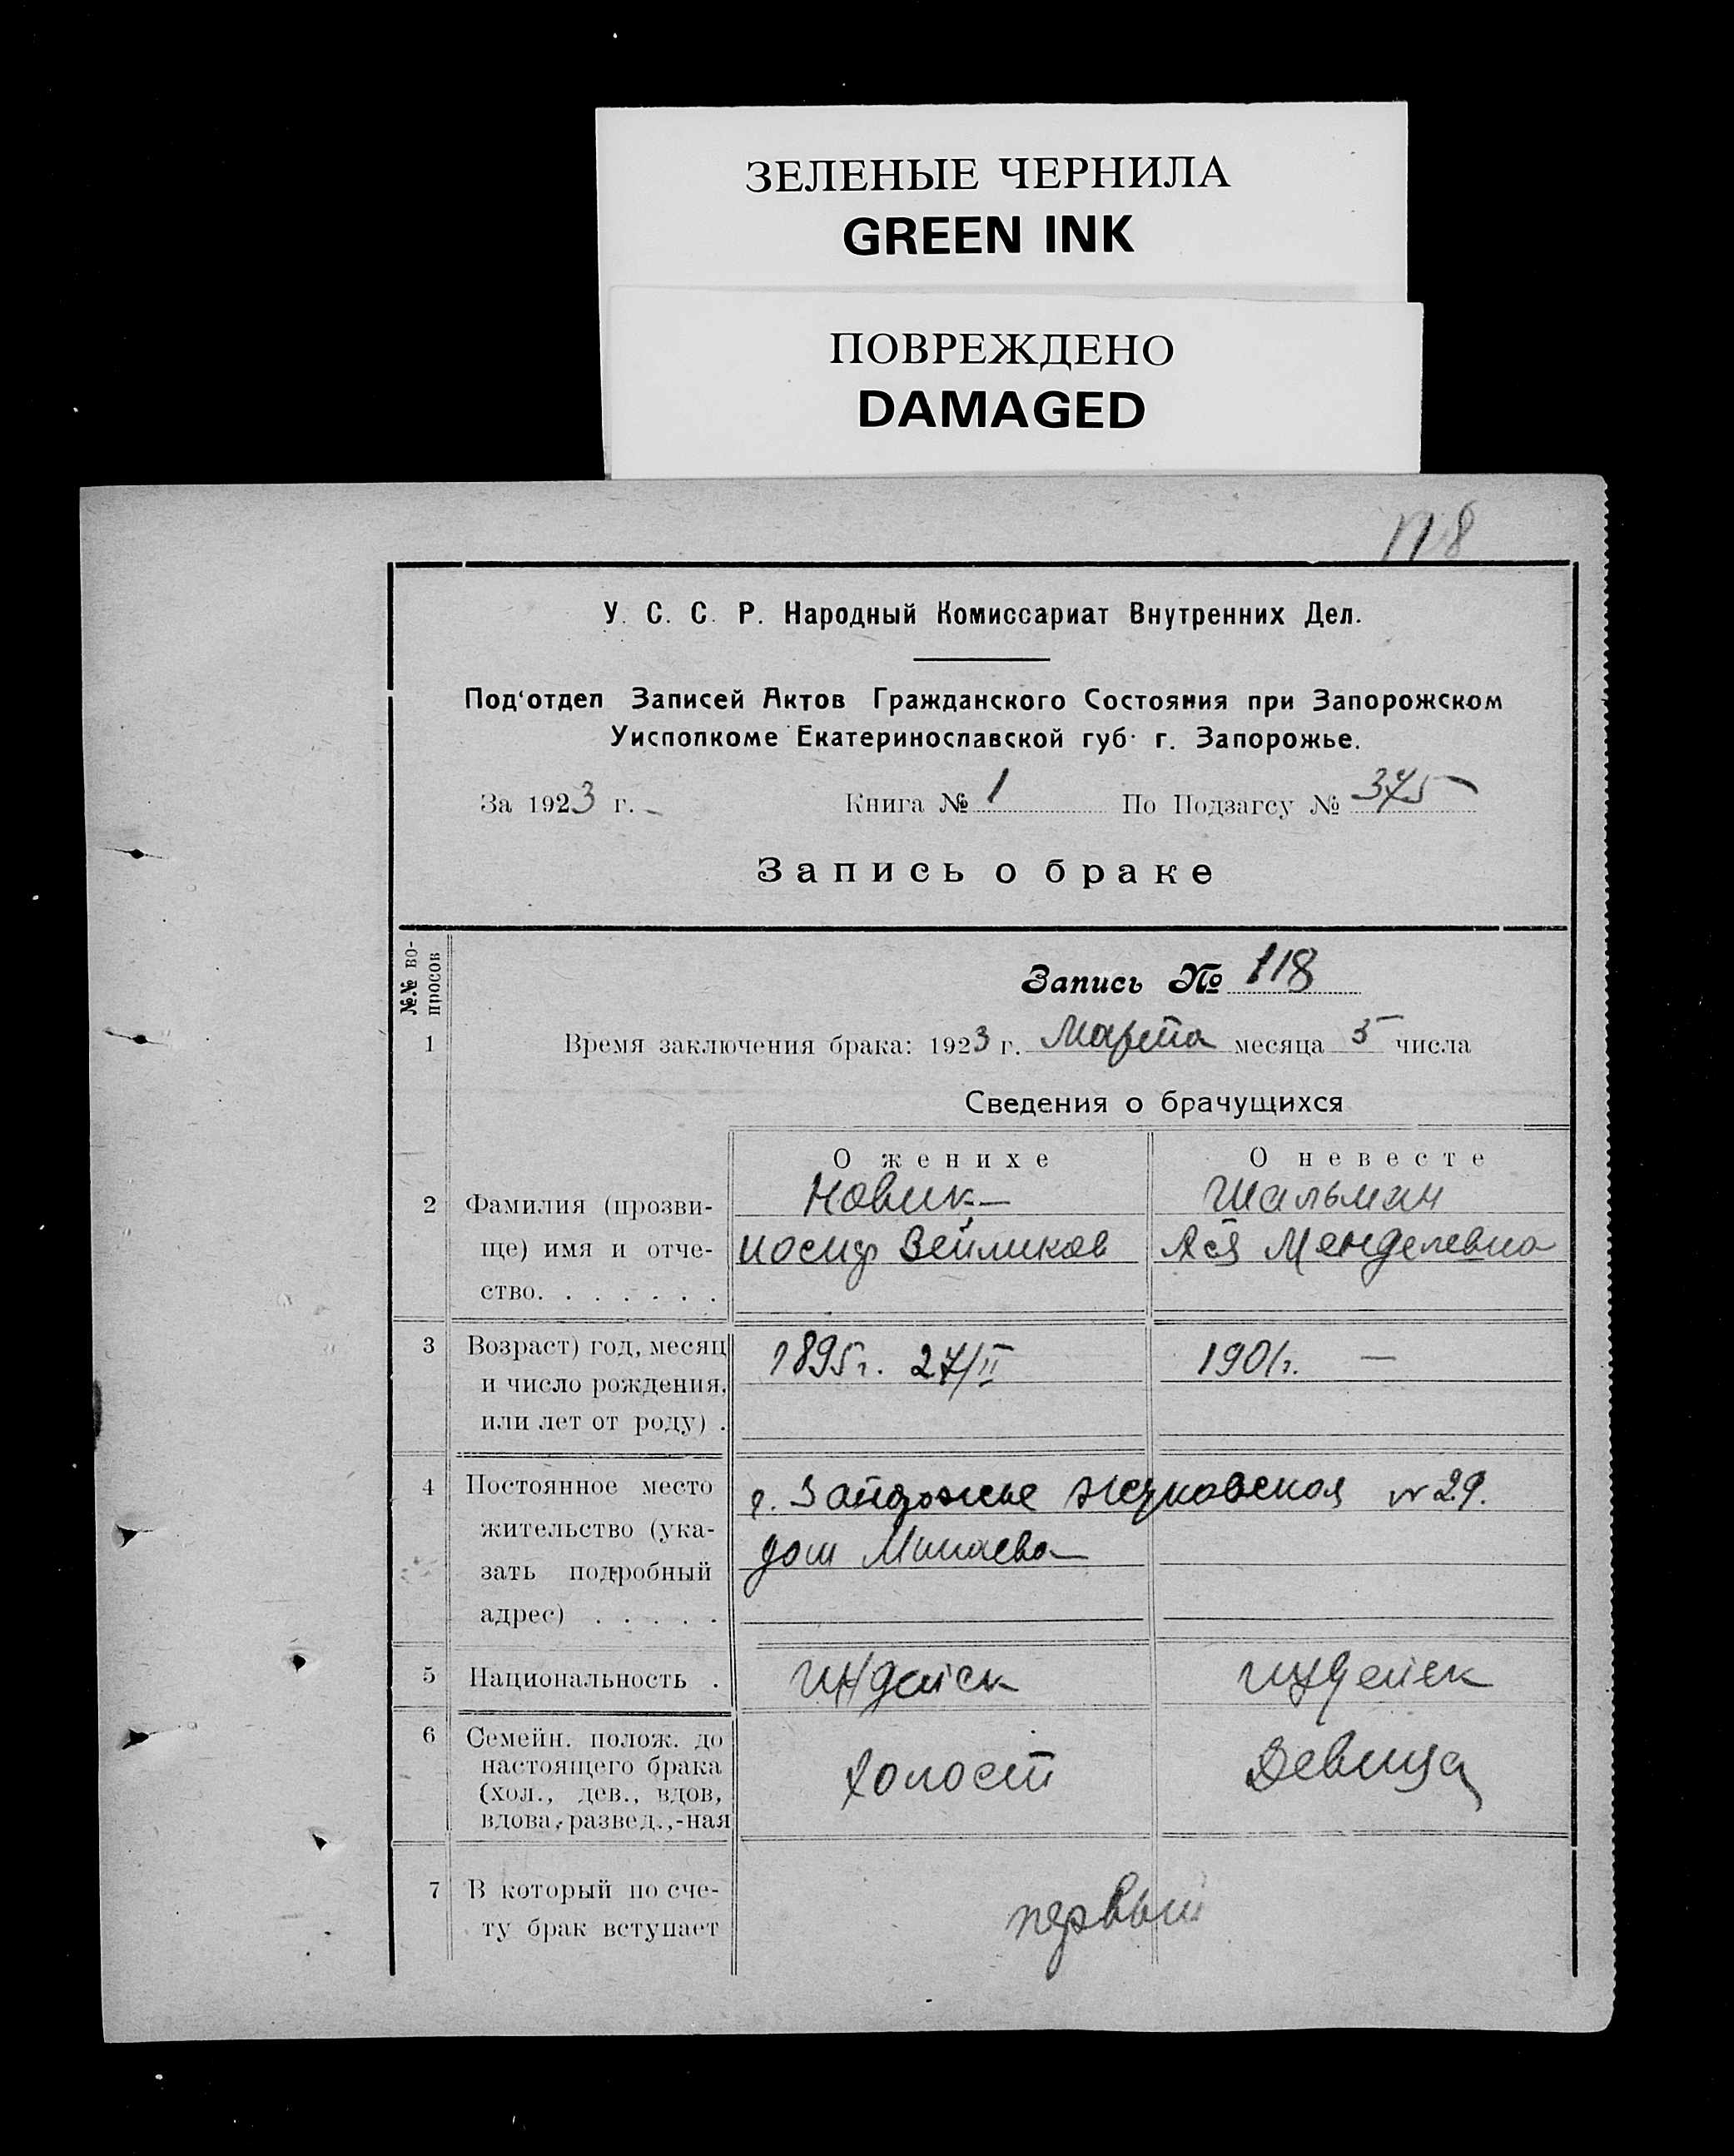 ЗЕЛЕНЫЕ ЧЕРНИЛА
GREEN INK
ПОВРЕЖДЕНО
DAMAGED
118
У. С. С. Р. Народный Комиссариат Внутренних Дел.
Под'отдел Записей Актов Гражданского Состояния при Запорожском
Уисполкоме Екатеринославской губ. г. Запорожье.
За 1923 г. Книга № 1 По Подзагсу № 375
Запись о браке
№.№ во-
просов
Запись № 118
1 Время заключения брака: 1923 г. Марта месяца 5 числа
Сведения о брачущихся
О женихе О невесте
2 Фамилия (прозви- Новик Шальман
ще) имя и отче- Иосиф Зейликов Ася Менделевна
ство. . . . . . .
3 Возраст) год, месяц 1895г. 27/II 1901г. —
и число рождения,
или лет от роду) .
4 Постоянное место г. Запорожье Жуковская № 29.
жительство (ука- дом Минаева
зать подробный
адрес) . . . . .
5 Национальность . Иудейск Иудейск
6 Семейн. полож. до
настоящего брака Холост Девица
(хол., дев., вдов,
вдова, развед.,-ная
7 В который по сче- первый
ту брак вступает